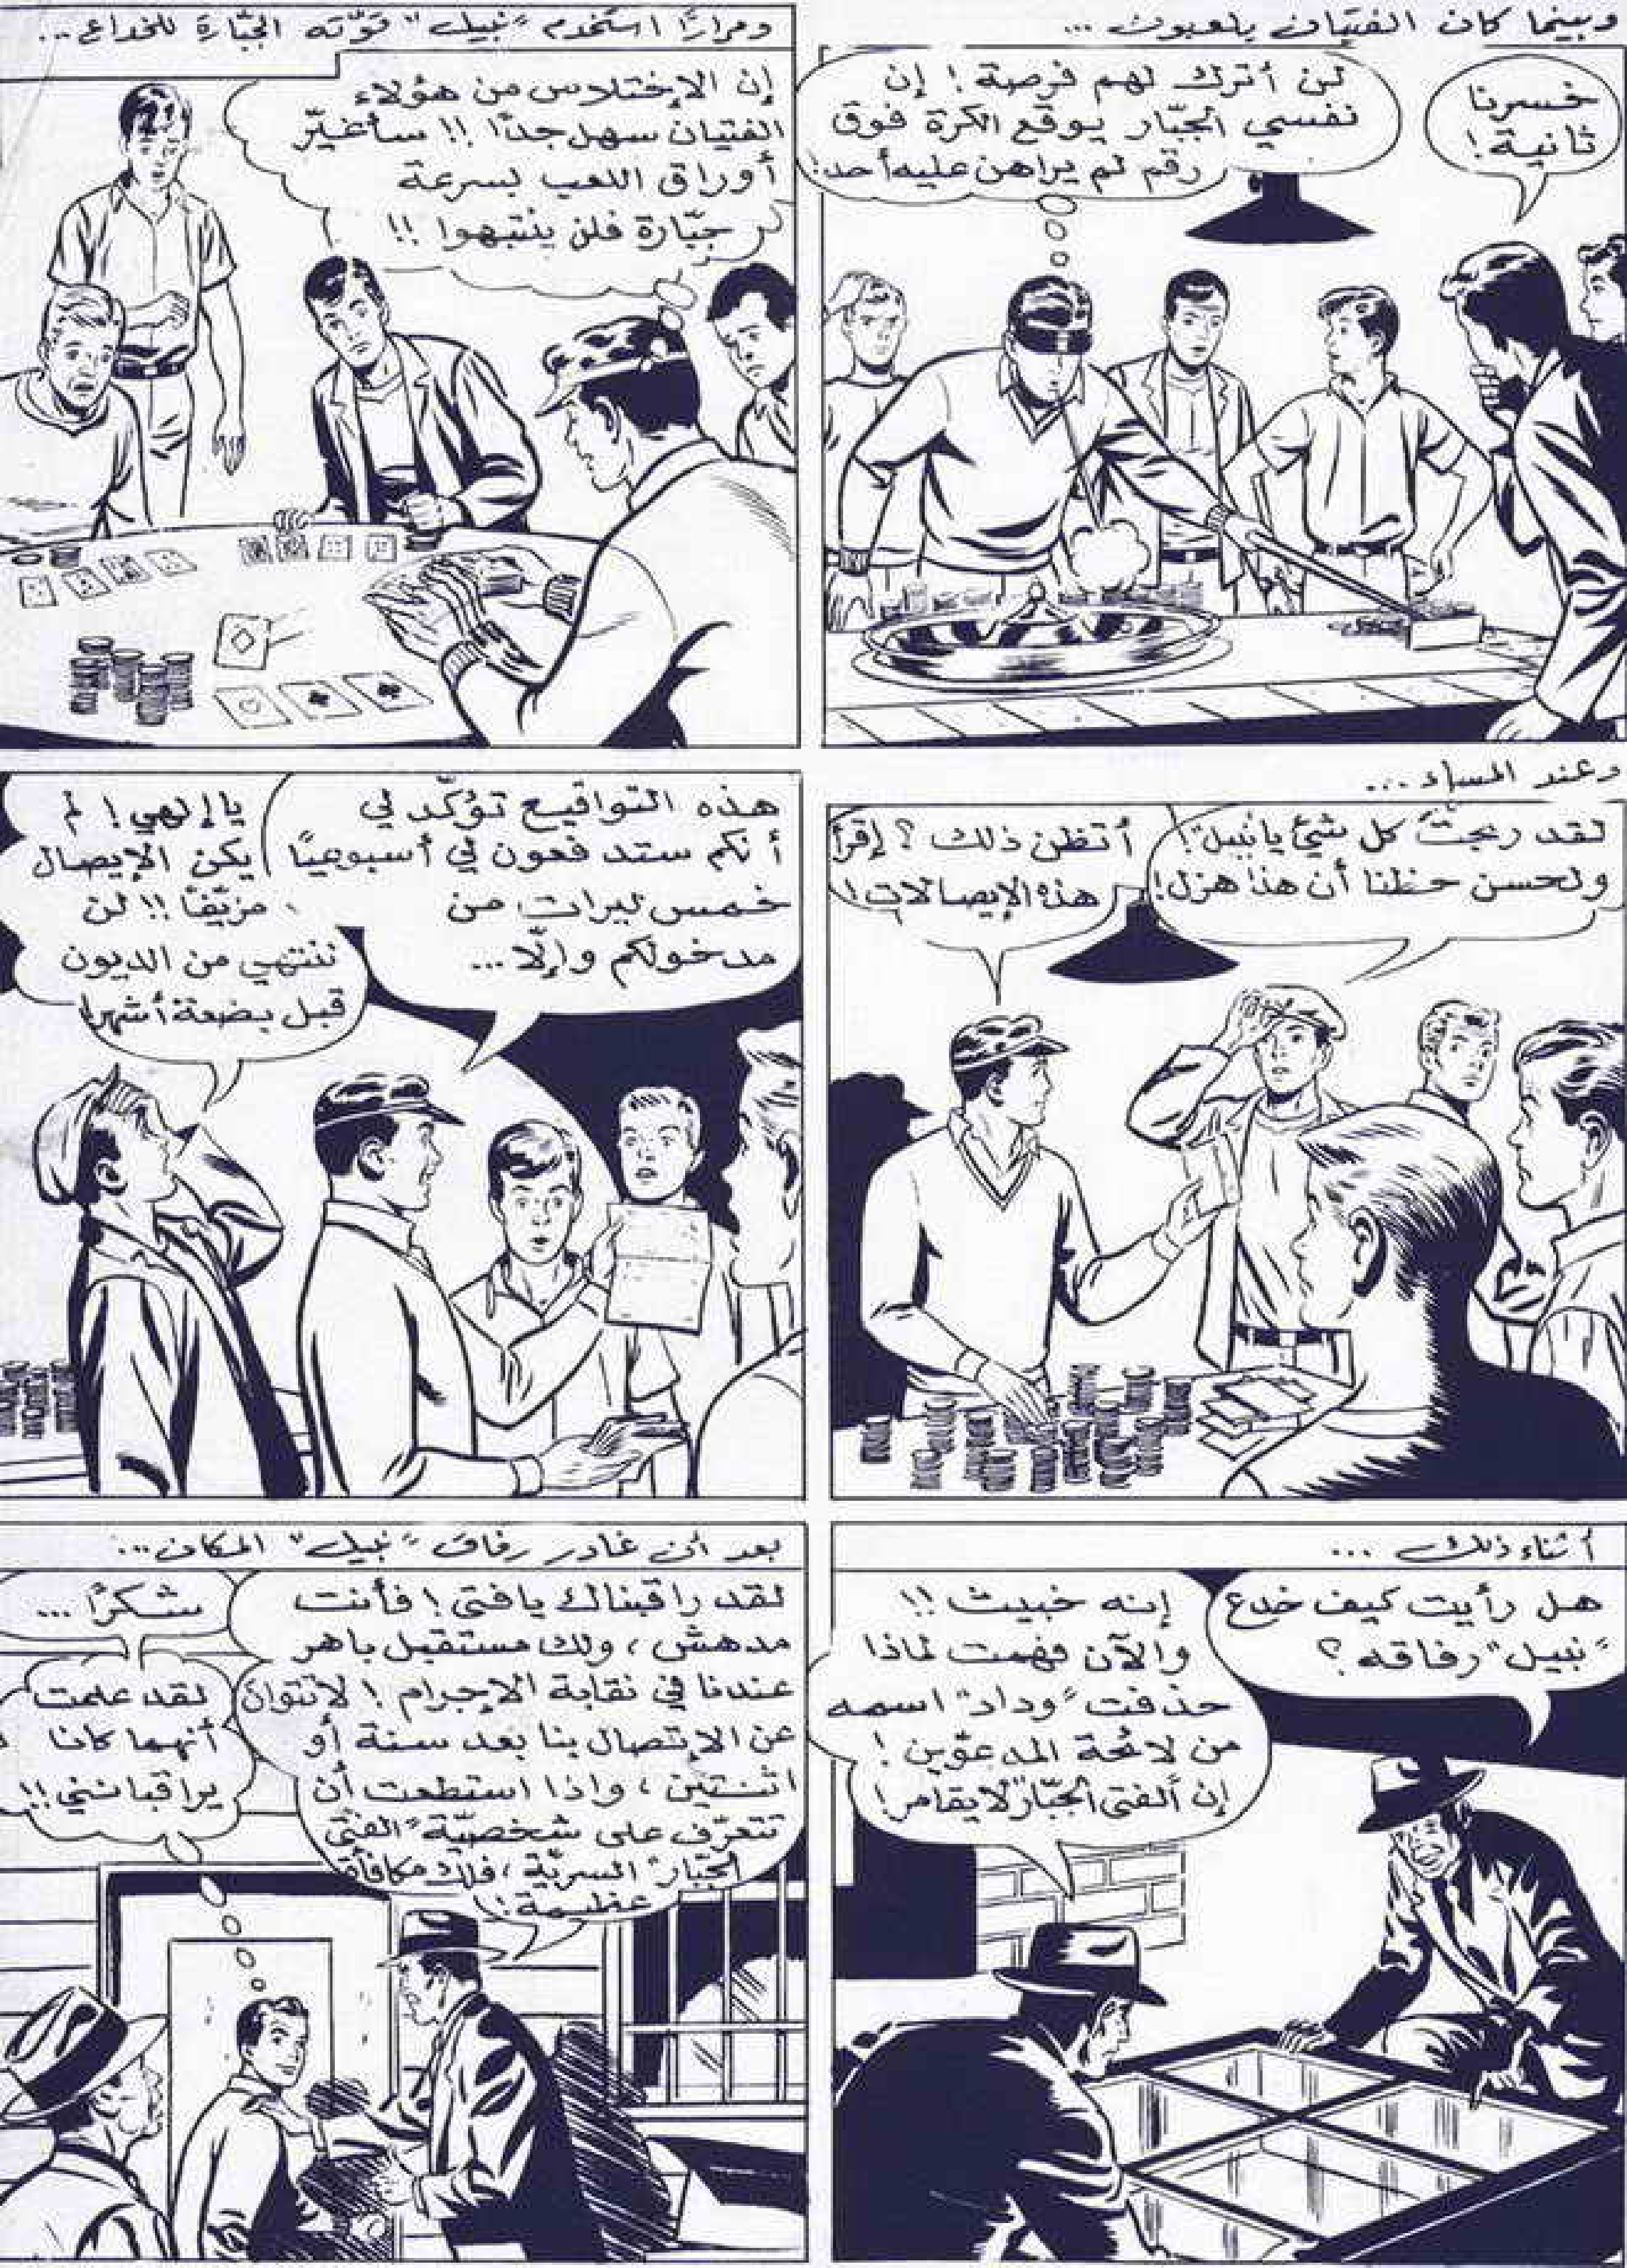 وبينما كان الفتيان يلعبون...
خسرنا
ثانية!
لن أترك لهم فرصة! إن
نفسي الجبّار يوقع الكرة فوق
رقم لم يراهن عليه أحد!
ومرارًا استخدم "نبيل" قوّته الجبّارة للخداع...
إن الإختلاس من هؤلاء
الفتيان سهل جدًا!! سأغيّر
أوراق اللعب بسرعة
جبّارة فلن ينتبهوا!!
وعند المساء...
لقد ربحتَ كل شيء يا نبيل!
ولحسن حظنا أن هذا هزل!
أتظن ذلك؟ إقرأ
هذه الإيصالات!
هذه التواقيع تؤكّد لي
أنكم ستدفعون لي أسبوعيًا
خمس ليرات من
مدخولكم وإلّا...
يا إلهي! لم
يكن الإيصال
مزيّفًا!! لن
ننتهي من الديون
قبل بضعة أشهر!
أثناء ذلك...
هل رأيت كيف خدع
"نبيل" رفاقه؟
إنه خبيث!!
والآن فهمت لماذا
حذفت "وداد" اسمه
من لائحة المدعوّين!
إن "الفتى الجبّار" لا يقامر!
بعد أن غادر رفاق "نبيل" المكان...
لقد راقبناك يا فتى! فأنت
مدهش، ولك مستقبل باهر
عندنا في نقابة الإجرام! لا تتوانَ
عن الإتصال بنا بعد سنة أو
اثنتين، وإذا استطعت أن
تتعرّف على شخصيّة "الفتى
الجبّار" السريّة، فلك مكافأة
عظيمة!!
شكرًا...
لقد علمت
أنهما كانا
يراقبانني!!